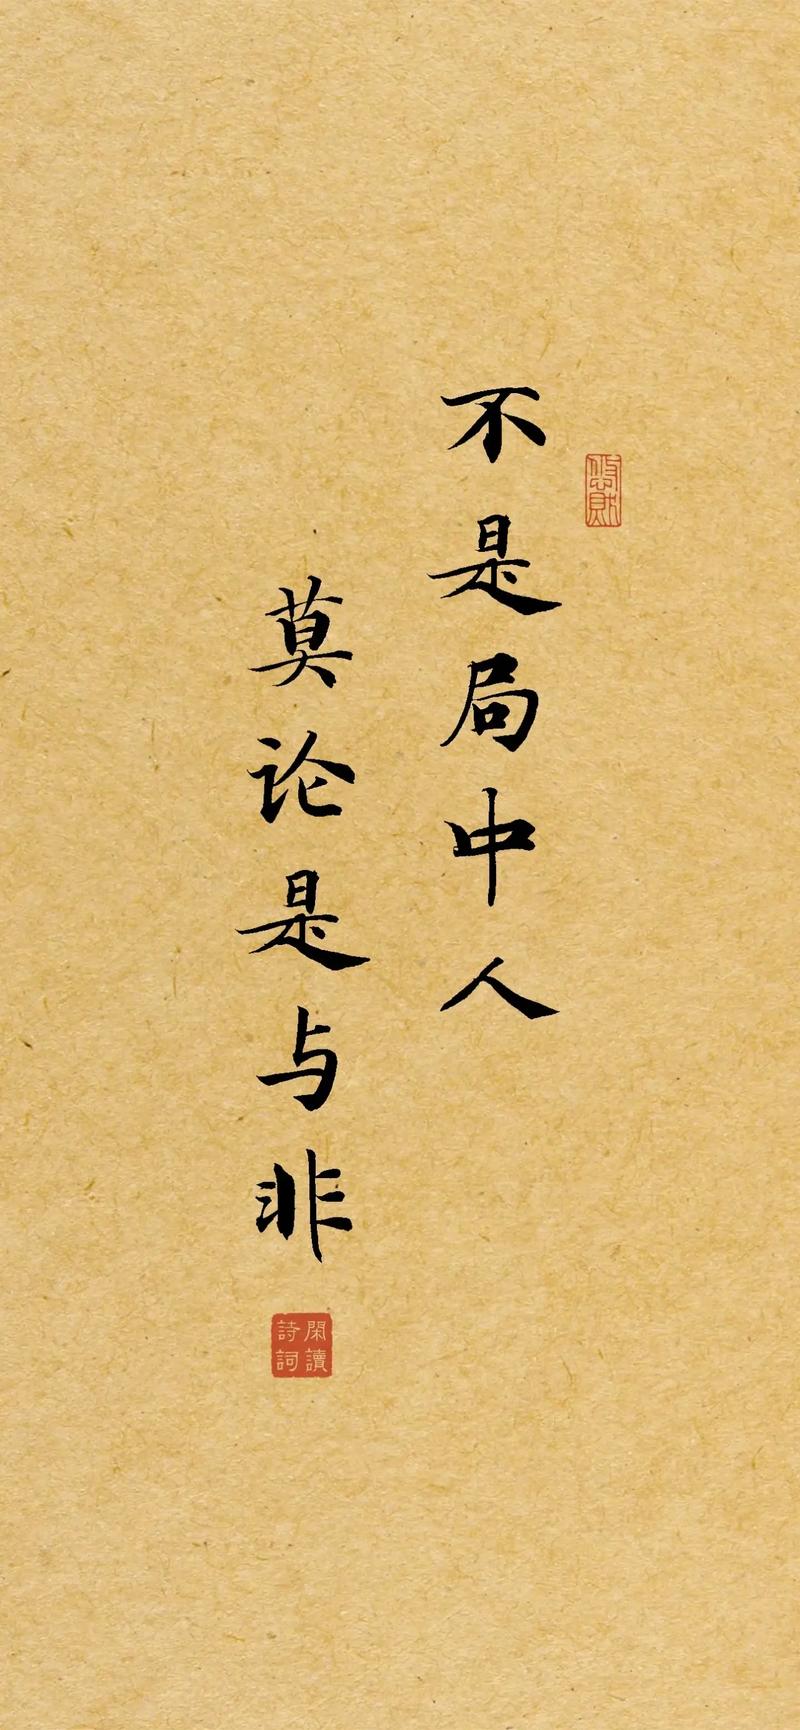 不是局中人
莫论是与非
閑讀
詩詞